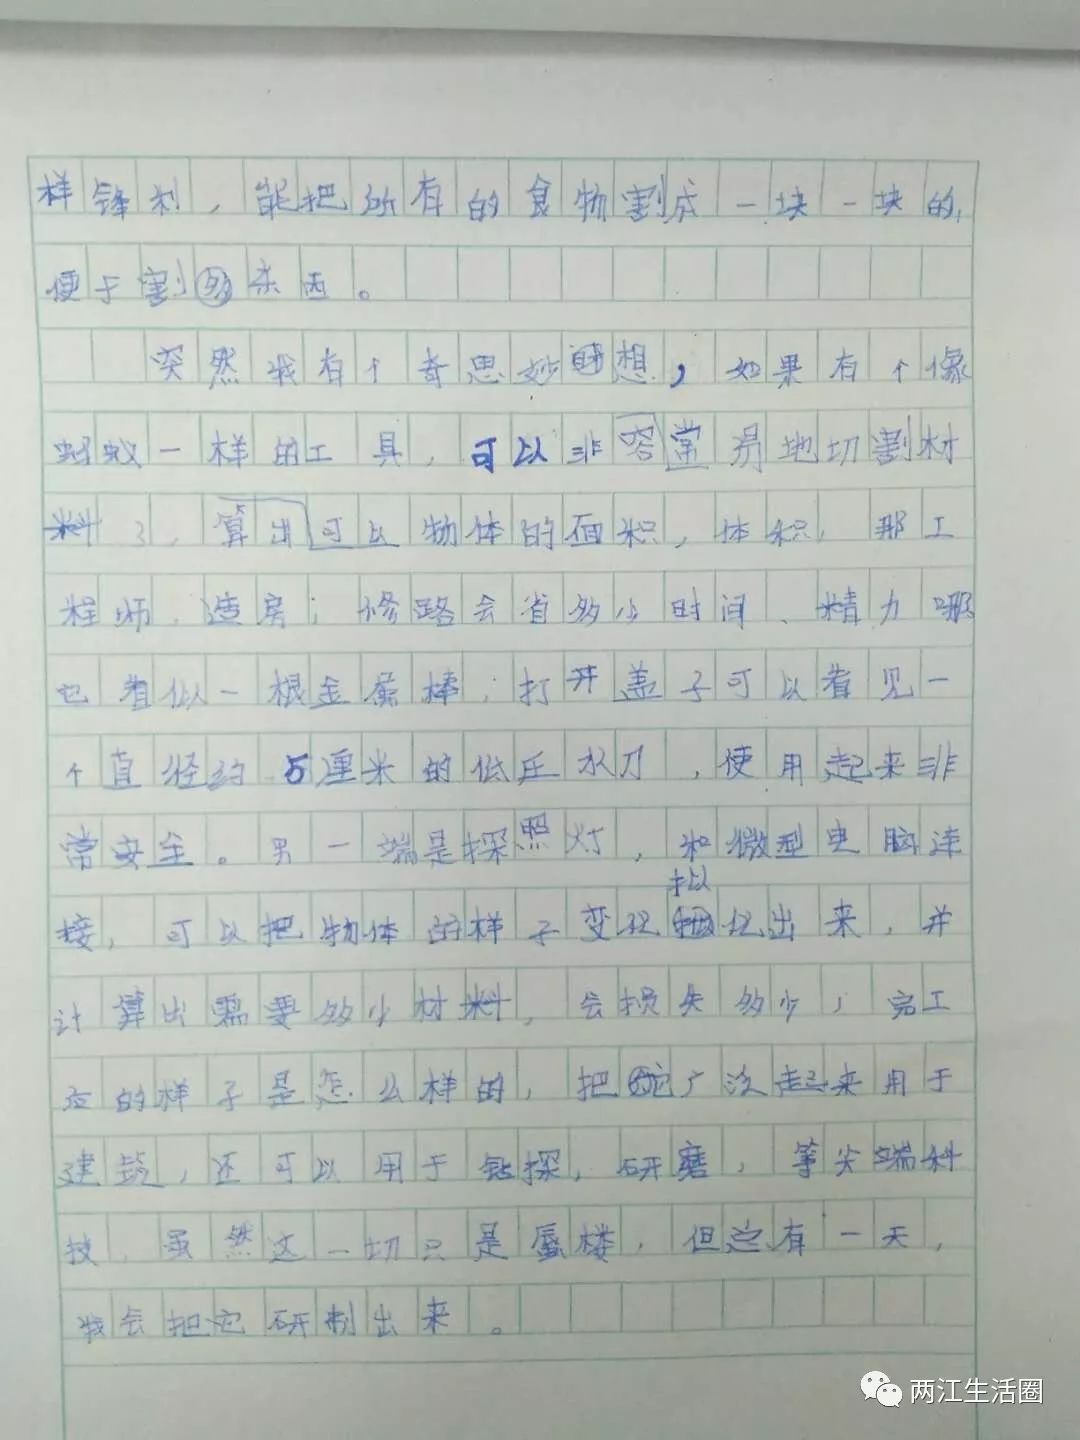 样锋利，能把所有的食物割成一块一块的，
便于割东西。
突然我有个奇思妙想，如果有个像
蚂蚁一样的工具，可以非常容易地切割材
料了，算出可以物体的面积，体积，那工
程师、造房；修路会省多少时间、精力哪
也看似一根金属棒，打开盖子可以看见一
个直径约5厘米的低压水刀，使用起来非
常安全。另一端是探照灯，和微型电脑连
接，可以把物体的样子变化拟化出来，并
计算出需要多少材料，会损失多少，完工
应的样子是怎么样的，把它广泛起来用于
建筑，还可以用于钻探，研磨，等尖端科
技，虽然这一切只是蜃楼，但总有一天，
我会把它研制出来。
两江生活圈